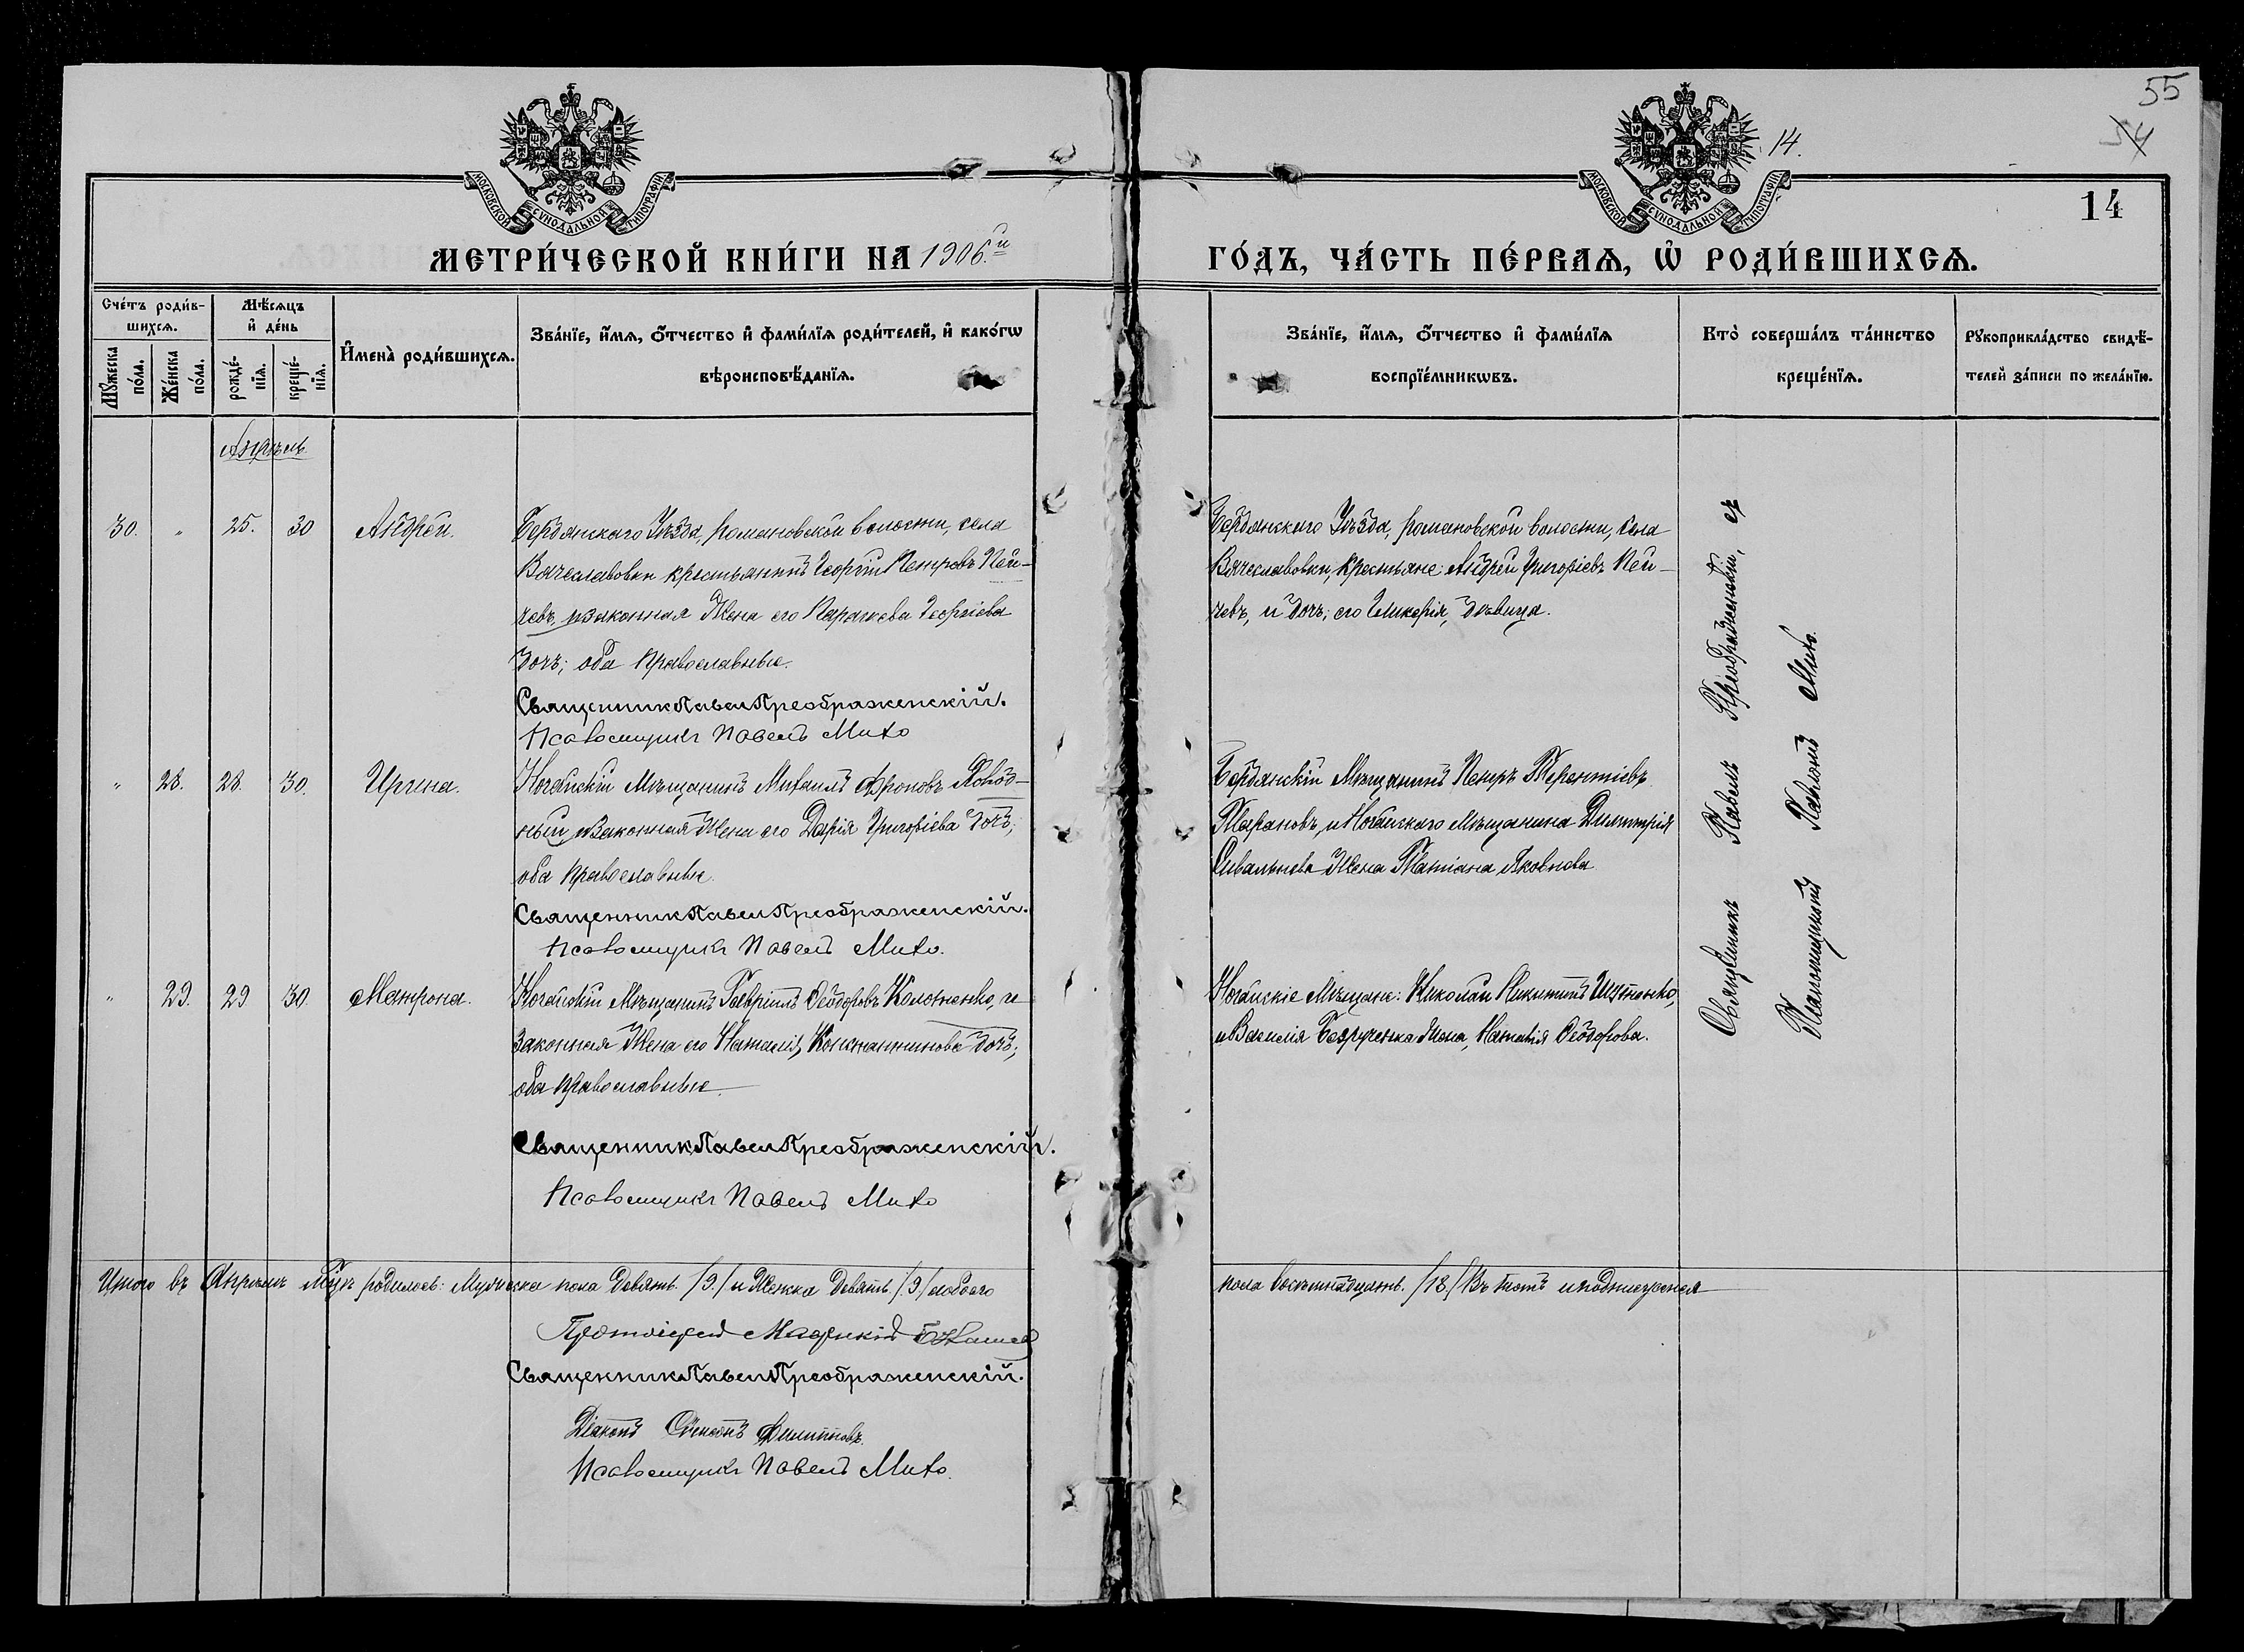 55
54
14.
14
МОСКОВСКОЙ СѴНОДАЛЬНОЙ ТИПОГРАФІИ
МОСКОВСКОЙ СѴНОДАЛЬНОЙ ТИПОГРАФІИ
МЕТРИ́ЧЕСКОЙ КНИ́ГИ НА 1906й
ГО́ДЪ, ЧА́СТЬ ПЕ́РВАѦ, Ѡ҆ РОДИ́ВШИХСѦ.
Сче́тъ роди́в-
шихсѧ.
Мꙋ́жеска по́ла.
Же́нска по́ла.
Мѣ́сѧцъ
и҆ де́нь
рожде́-
нїѧ.
креще́-
нїѧ.
И҆мена̀ роди́вшихсѧ.
Зва́нїе, и҆́мѧ, ѻ҆́тчество и҆ фами́лїѧ роди́телей, и҆ како́гѡ
вѣроисповѣ́данїѧ.
Зва́нїе, и҆́мѧ, ѻ҆́тчество и҆ фами́лїѧ
воспрїе́мникѡвъ.
Кто̀ соверша́лъ та́инство
креще́нїѧ.
Рꙋкоприкла́дство свидѣ́-
телей за́писи по жела́нїю.
Апрѣль
30. " 25. 30 Андрей.
Бердянскаго Уѣзда, Романовской волости, села
Вячеславовки крестьянинъ Георгій Петровъ Пей-
чевъ, и законная жена его Параскева Георгіева
дочь; оба православные.
Священник Павел Преображенскій.
Псаломщикъ Павелъ Михо
Бердянскаго Уѣзда, Романовской волости, села
Вячеславовки, крестьяне: Андрей Григоріевъ Пей-
чевъ, и дочь; его Гликерія, дѣвица.
" 28. 28. 30. Ирина.
Ногайскій Мѣщанинъ Михаилъ
ный, и законная жена его Дарія Григоріева дочь;
оба православные.
Священник Павел Преображенскій.
Псаломщикъ Павелъ Михо.
Бердянскій Мѣщанинъ Петръ Терентіевъ
Тарановъ, и Ногайскаго Мѣщанина Димитрія
Сивальнева жена Татіана Яковлева
" 29. 29 30. Матрона.
Ногайскій Мѣщанинъ Гавріилъ Ѳеодоровъ и
законная жена его Наталія Константинова дочь;
оба православные.
Священник Павел Преображенскій.
Псаломщикъ Павелъ Михо
Ногайскіе Мѣщане: Николай Никитинъ
и Василія Безрученка жена, Наталія Ѳеодорова.
Священникъ Павелъ Преображенскій, съ
Псаломщикомъ Павломъ Михо.
Итого въ Апрѣлѣ мцѣ родилось: Мужеска пола девять /9/ и Женска девять /9/ обоего
пола восемнадцать /18/ Въ томъ и подписуемся
Протоіерей
Священник Павел Преображенскій.
Діаконъ Сѵмеонъ Филипповъ.
Псаломщикъ Павелъ Михо.